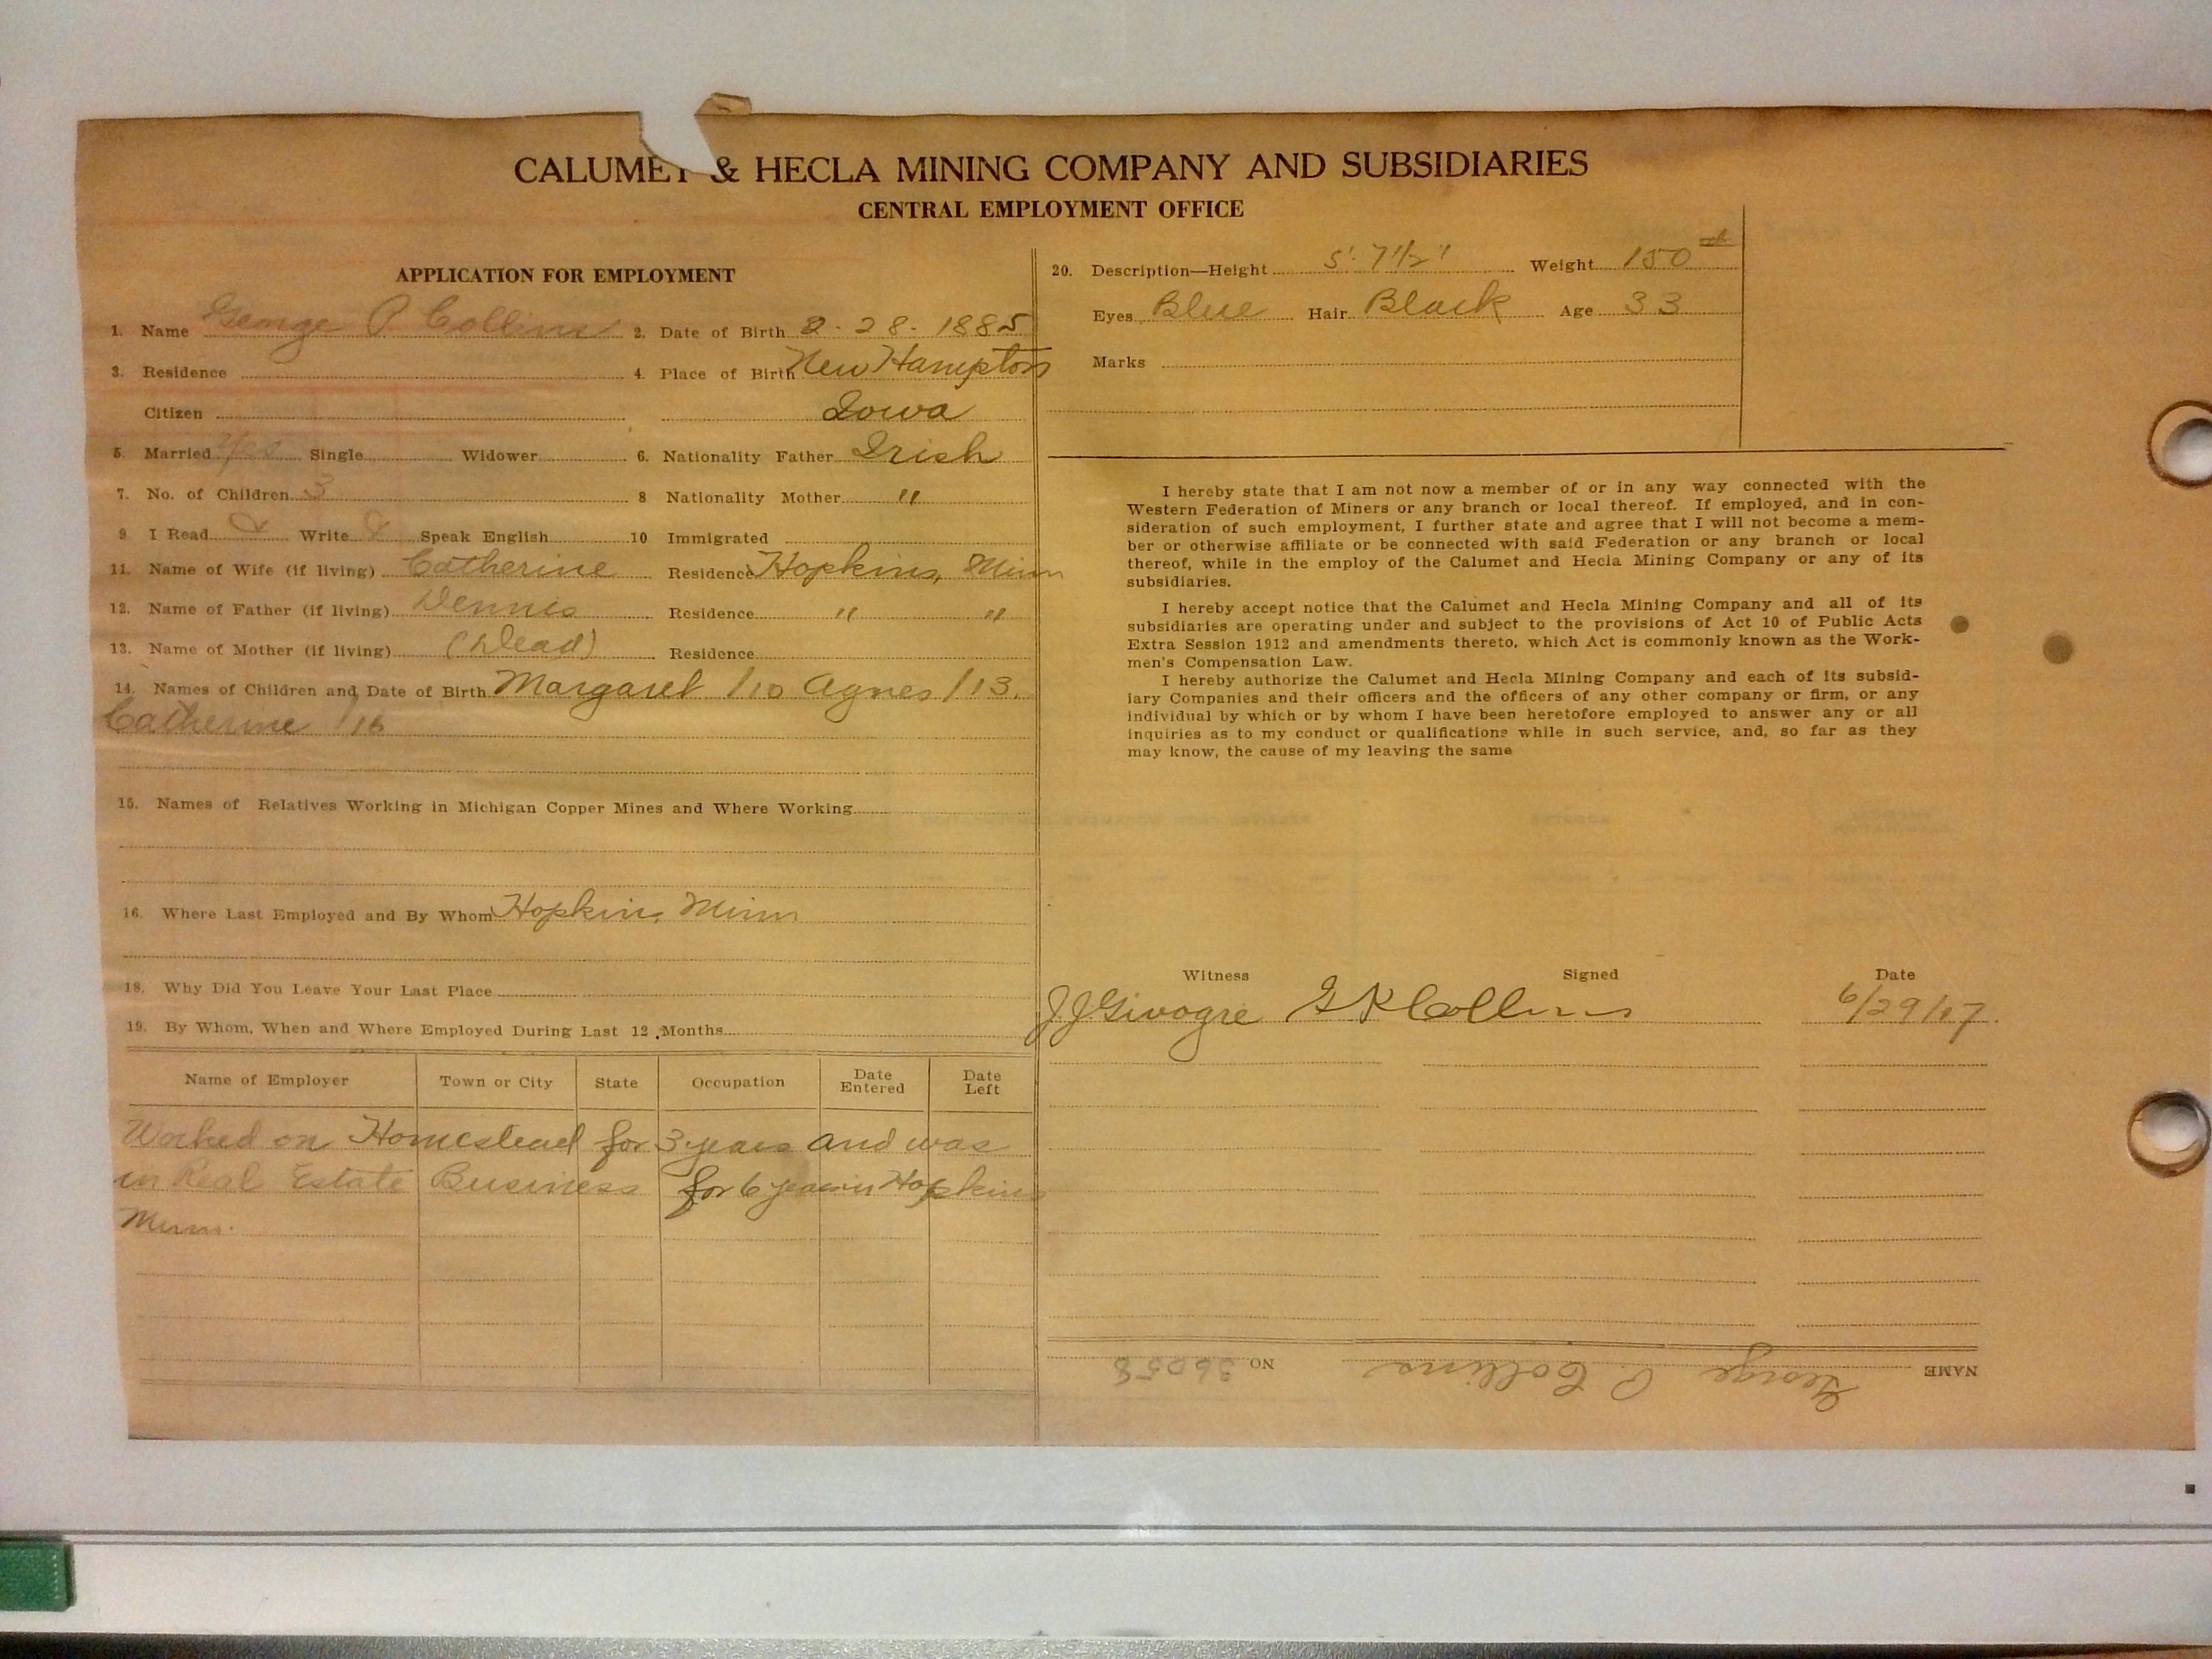 CALUMET & HECLA MINING COMPANY AND SUBSIDIARIES
CENTRAL EMPLOYMENT OFFICE
APPLICATION FOR EMPLOYMENT
1. Name George P Collins 2. Date of Birth 2-28-1885
3. Residence 4. Place of Birth New Hampton
Citizen Iowa
5. Married Yes Single Widower 6. Nationality Father Irish
7. No. of Children 3 8 Nationality Mother "
9 I Read Write Speak English 10 Immigrated
11. Name of Wife (if living) Catherine Residence Hopkins, Minn
12. Name of Father (if living) Dennis Residence " "
13. Name of Mother (if living) (Dead) Residence
14. Names of Children and Date of Birth Margaret /10 Agnes /13.
Catherine /16
15. Names of Relatives Working in Michigan Copper Mines and Where Working
16. Where Last Employed and By Whom Hopkins, Minn
18. Why Did You Leave Your Last Place
19. By Whom, When and Where Employed During Last 12 Months
Name of Employer Town or City State Occupation Date Entered Date Left
Worked on Homestead for 3 years and was
in Real Estate Business for 6 years in Hopkins
Minn.
20. Description—Height 5' 7 1/2" Weight 150
Eyes Blue Hair Black Age 33
Marks
I hereby state that I am not now a member of or in any way connected with the
Western Federation of Miners or any branch or local thereof. If employed, and in con-
sideration of such employment, I further state and agree that I will not become a mem-
ber or otherwise affiliate or be connected with said Federation or any branch or local
thereof, while in the employ of the Calumet and Hecla Mining Company or any of its
subsidiaries.
I hereby accept notice that the Calumet and Hecla Mining Company and all of its
subsidiaries are operating under and subject to the provisions of Act 10 of Public Acts
Extra Session 1912 and amendments thereto, which Act is commonly known as the Work-
men's Compensation Law.
I hereby authorize the Calumet and Hecla Mining Company and each of its subsid-
iary Companies and their officers and the officers of any other company or firm, or any
individual by which or by whom I have been heretofore employed to answer any or all
inquiries as to my conduct or qualifications while in such service, and, so far as they
may know, the cause of my leaving the same
Witness Signed Date
Collins 6/29/17.
NAME George P. Collins NO 36058